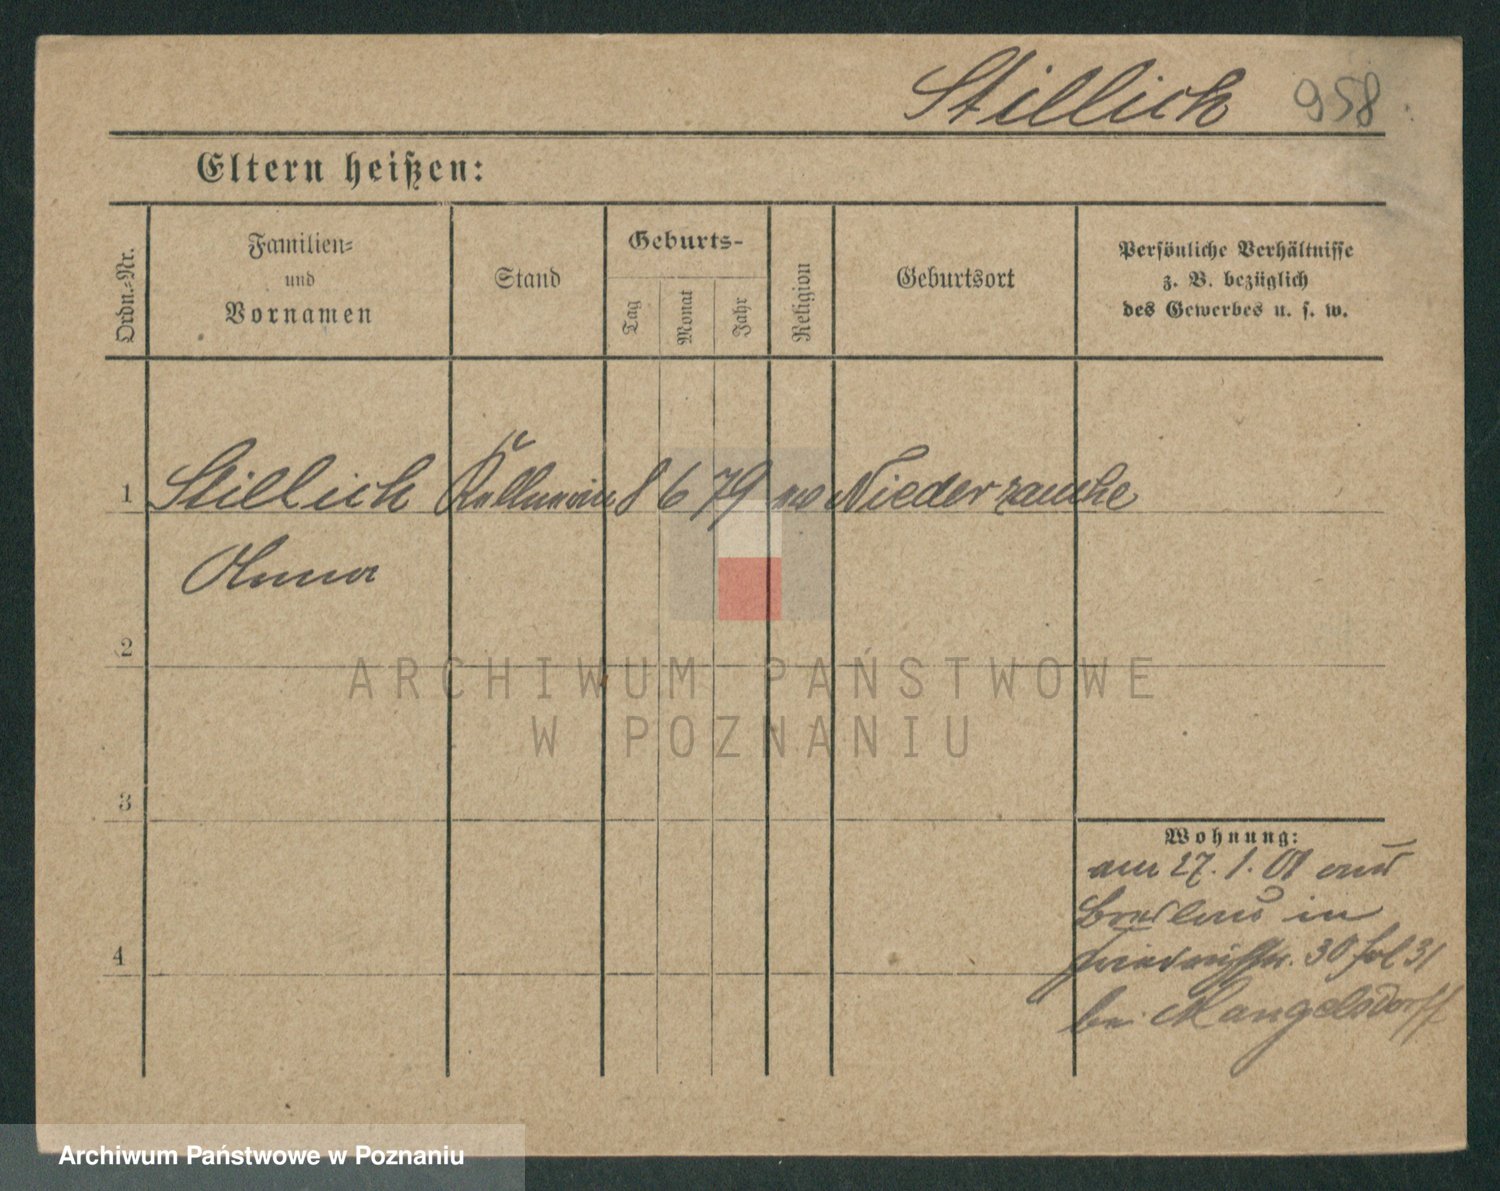 Stillich 958
Eltern heißen:
Ordn.-Nr.
Familien-
und
Vornamen
Stand
Geburts-
Tag
Monat
Jahr
Religion
Geburtsort
Persönliche Verhältnisse
z. B. bezüglich
des Gewerbes u. s. w.
1 Stillich Kellnerin 8 6 79 ev Nieder
Anna
2
ARCHIWUM PAŃSTWOWE
W POZNANIU
3
4
Wohnung:
am 27. 1. 01 aus
Breslau in
30 fol 31
bei Mangelsdorff
Archiwum Państwowe w Poznaniu